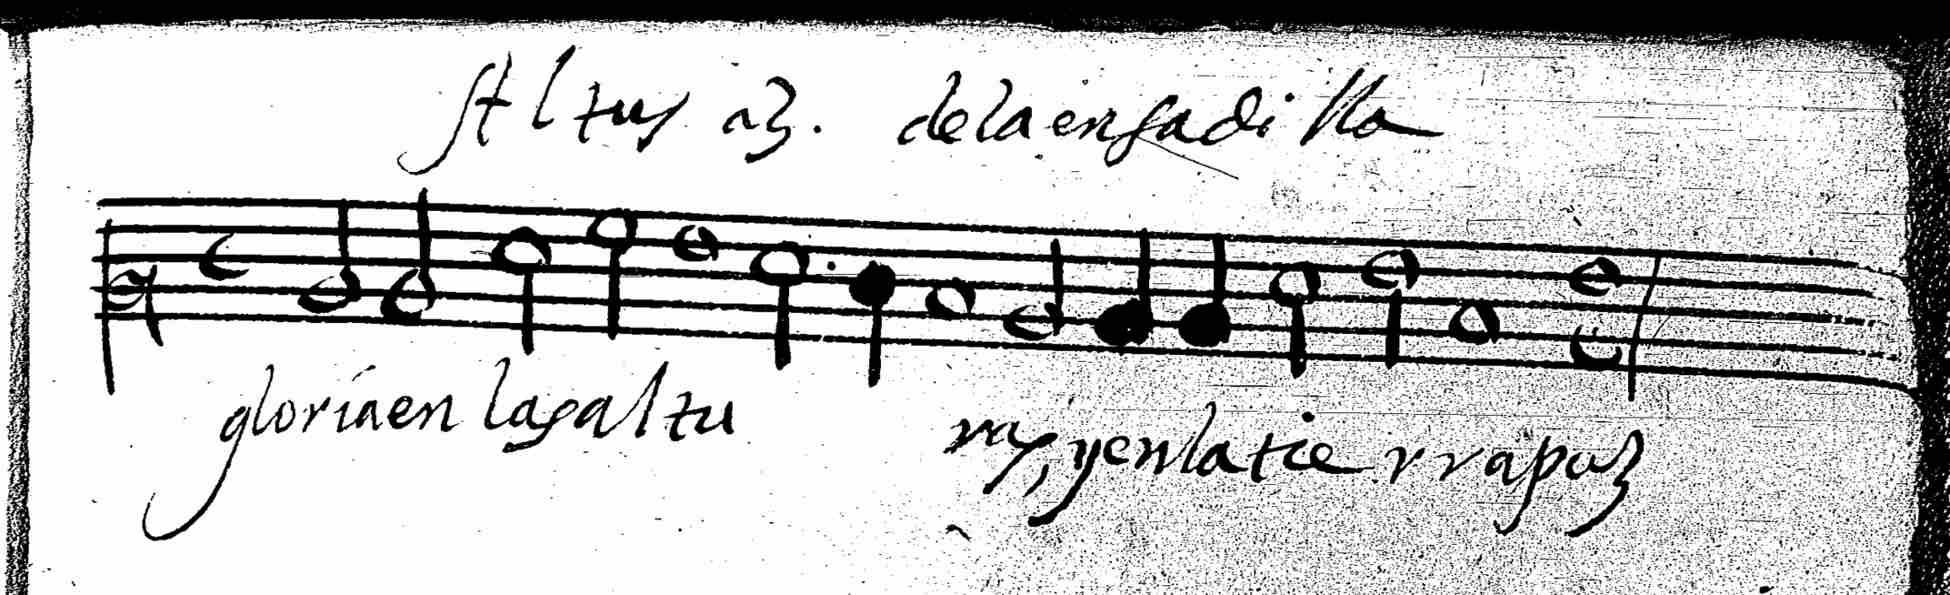 Altus a3. de la ensadilla
gloria en las altu ras, y en la tie rra paz